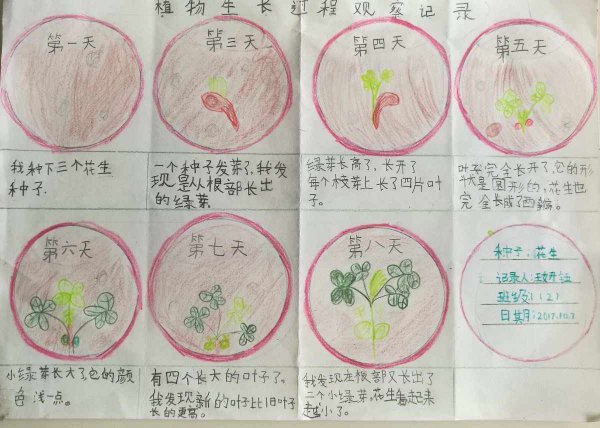 植物生长过程观察记录
第一天
第三天
第四天
第五天
我种下三个花生
种子.
一个种子发芽了,我发
现是从根部长出
的绿芽
绿芽长高了,长开了
每个枝芽上长了四片叶
子。
叶子完全长开了,它的形
状是圆形的,花生也
完全长成了两瓣。
第六天
第七天
第八天
种子:花生
记录人:
班级:1(2)
日期:2017.10.7
小绿芽长大了它的颜
色浅一点。
有四个长大的叶子了。
我发现新的叶子比旧叶子
长的更高。
我发现在根部又长出了
二个小绿芽,花生看起来
越小了。